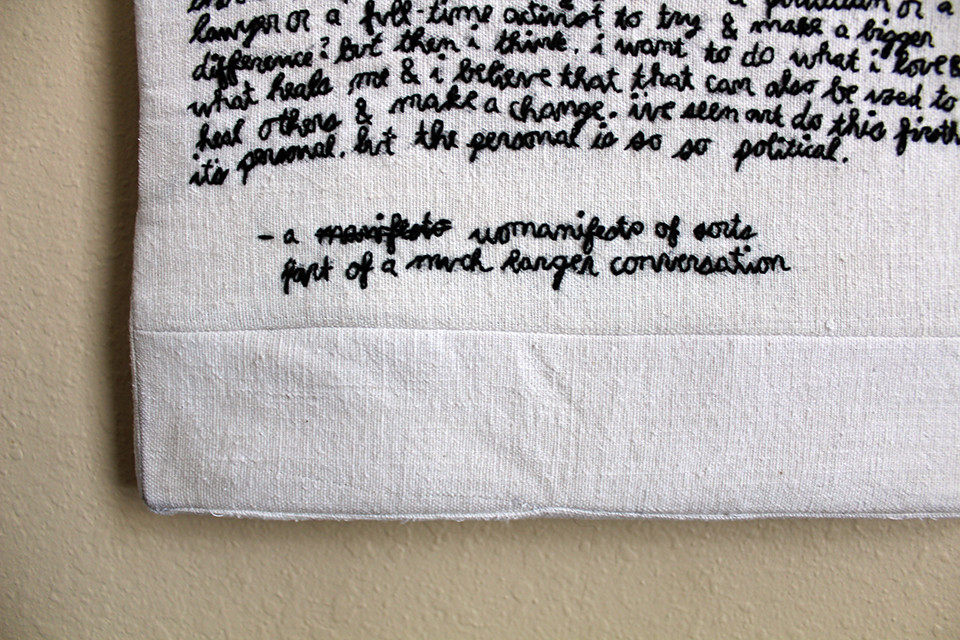 or a
lawyer or a full-time activist to try & make a bigger
difference? but then i think. i want to do what i love &
what heals me & i believe that that can also be used to
heal others & make a change. ive seen art do this firsth
it's personal. but the personal is so so political.
- a ~~manifesto~~ womanifesto of sorts
part of a much larger conversation